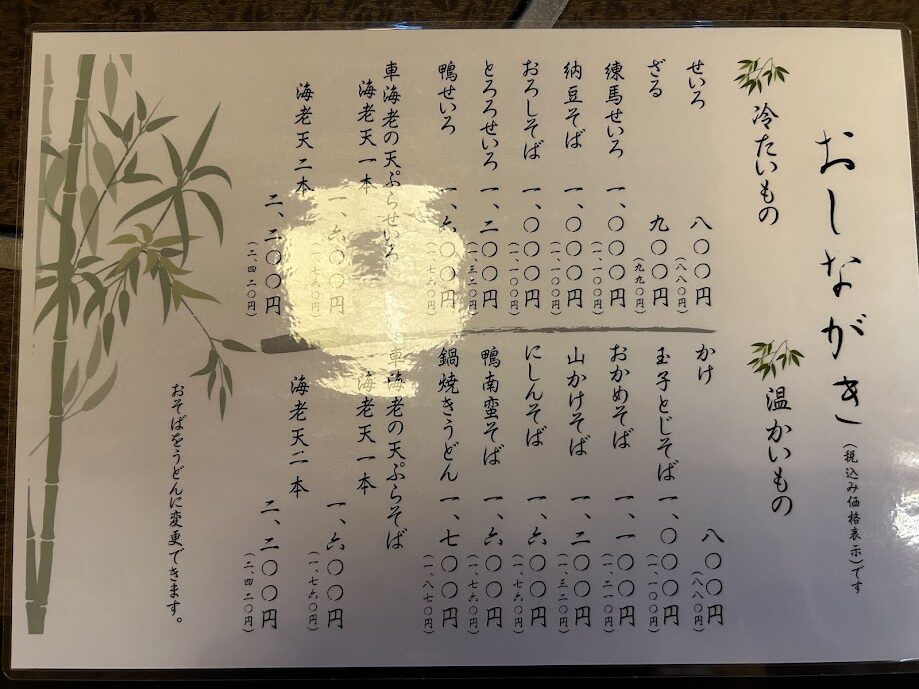 おしながき（税込み価格表示）です
冷たいもの
せいろ 八〇〇円
（八八〇円）
ざる 九〇〇円
（九九〇円）
練馬せいろ 一、〇〇〇円
（一、一〇〇円）
納豆そば 一、〇〇〇円
（一、一〇〇円）
おろしそば 一、〇〇〇円
（一、一〇〇円）
とろろせいろ 一、二〇〇円
（一、三二〇円）
鴨せいろ 一、六〇〇円
（一、七六〇円）
車海老の天ぷらせいろ
海老天一本 一、六〇〇円
（一、七六〇円）
海老天二本 二、二〇〇円
（二、四二〇円）
温かいもの
かけ 八〇〇円
（八八〇円）
玉子とじそば 一、〇〇〇円
（一、一〇〇円）
おかめそば 一、一〇〇円
（一、二一〇円）
山かけそば 一、二〇〇円
（一、三二〇円）
にしんそば 一、六〇〇円
（一、七六〇円）
鴨南蛮そば 一、六〇〇円
（一、七六〇円）
鍋焼きうどん 一、七〇〇円
（一、八七〇円）
車海老の天ぷらそば
海老天一本 一、六〇〇円
（一、七六〇円）
海老天二本 二、二〇〇円
（二、四二〇円）
おそばをうどんに変更できます。